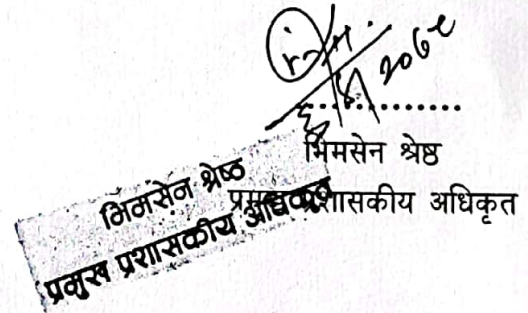 ..................
भिमसेन श्रेष्ठ
प्रमुख प्रशासकीय अधिकृत
भिमसेन श्रेष्ठ
प्रमुख प्रशासकीय अधिकृत